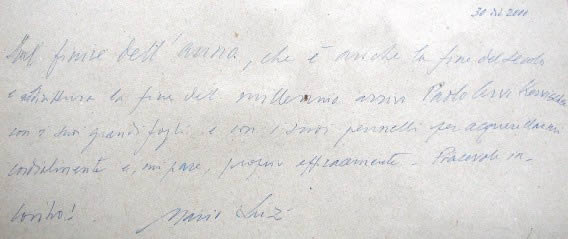 30 dic 2000
Sul finire dell'anno, che è anche la fine del secolo
e addirittura la fine del millennio arriva Paolo
con i suoi grandi fogli e con i suoi pennelli per acquerellarmi
cordialmente e, mi pare, proprio efficacemente. Piacevole in-
contro!
Mario Luzi